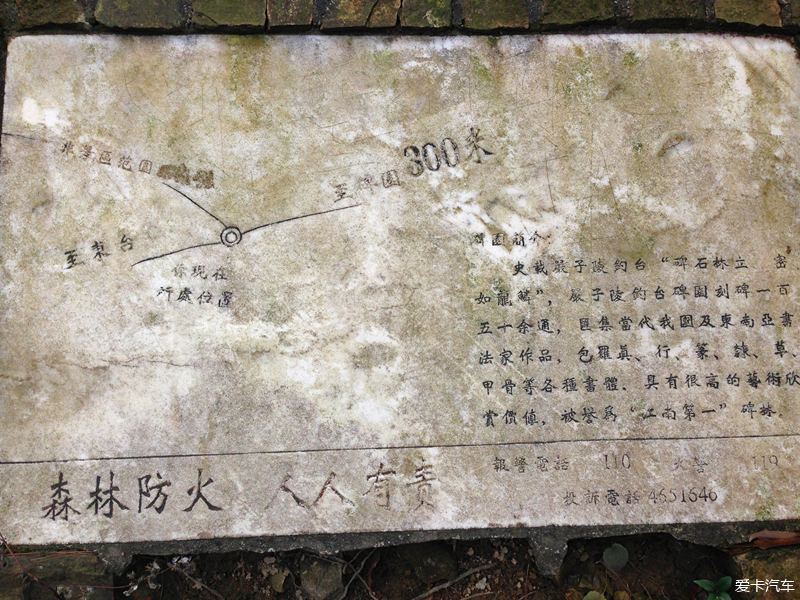 至碑園 300米
至東台
你現在
所處位置
碑園簡介:
史載嚴子陵釣台“碑石林立 密
如龍鱗”，嚴子陵釣台碑園刻碑一百
五十余通，匯集當代我國及東南亞書
法家作品，包羅真、行、篆、隸、草、
甲骨等各種書體、具有很高的藝術欣
賞價值，被譽為“江南第一”碑林.
報警電話 110 火警 119
投訴電話 4651646
森林防火 人人有责
爱卡汽车